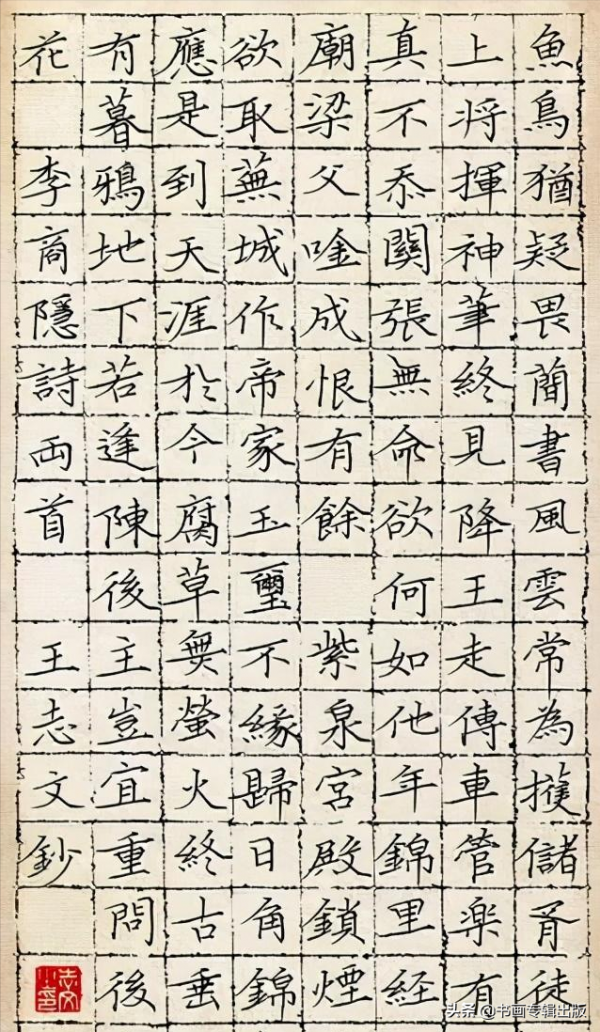 魚鳥猶疑畏簡書風雲常為擁儲胥徒
上將揮神筆終見降王走傳車管楽有
真不忝關張無命欲何如他年錦里経
廟梁父唫成恨有餘 紫泉宮殿鎖煙
欲取蕪城作帝家玉璽不緣歸日角錦
應是到天涯於今腐草無螢火終古垂
有暮鴉地下若逢陳後主豈宜重問後
花 李商隱詩両首 王志文鈔
志文小印
头条 @书画专辑出版